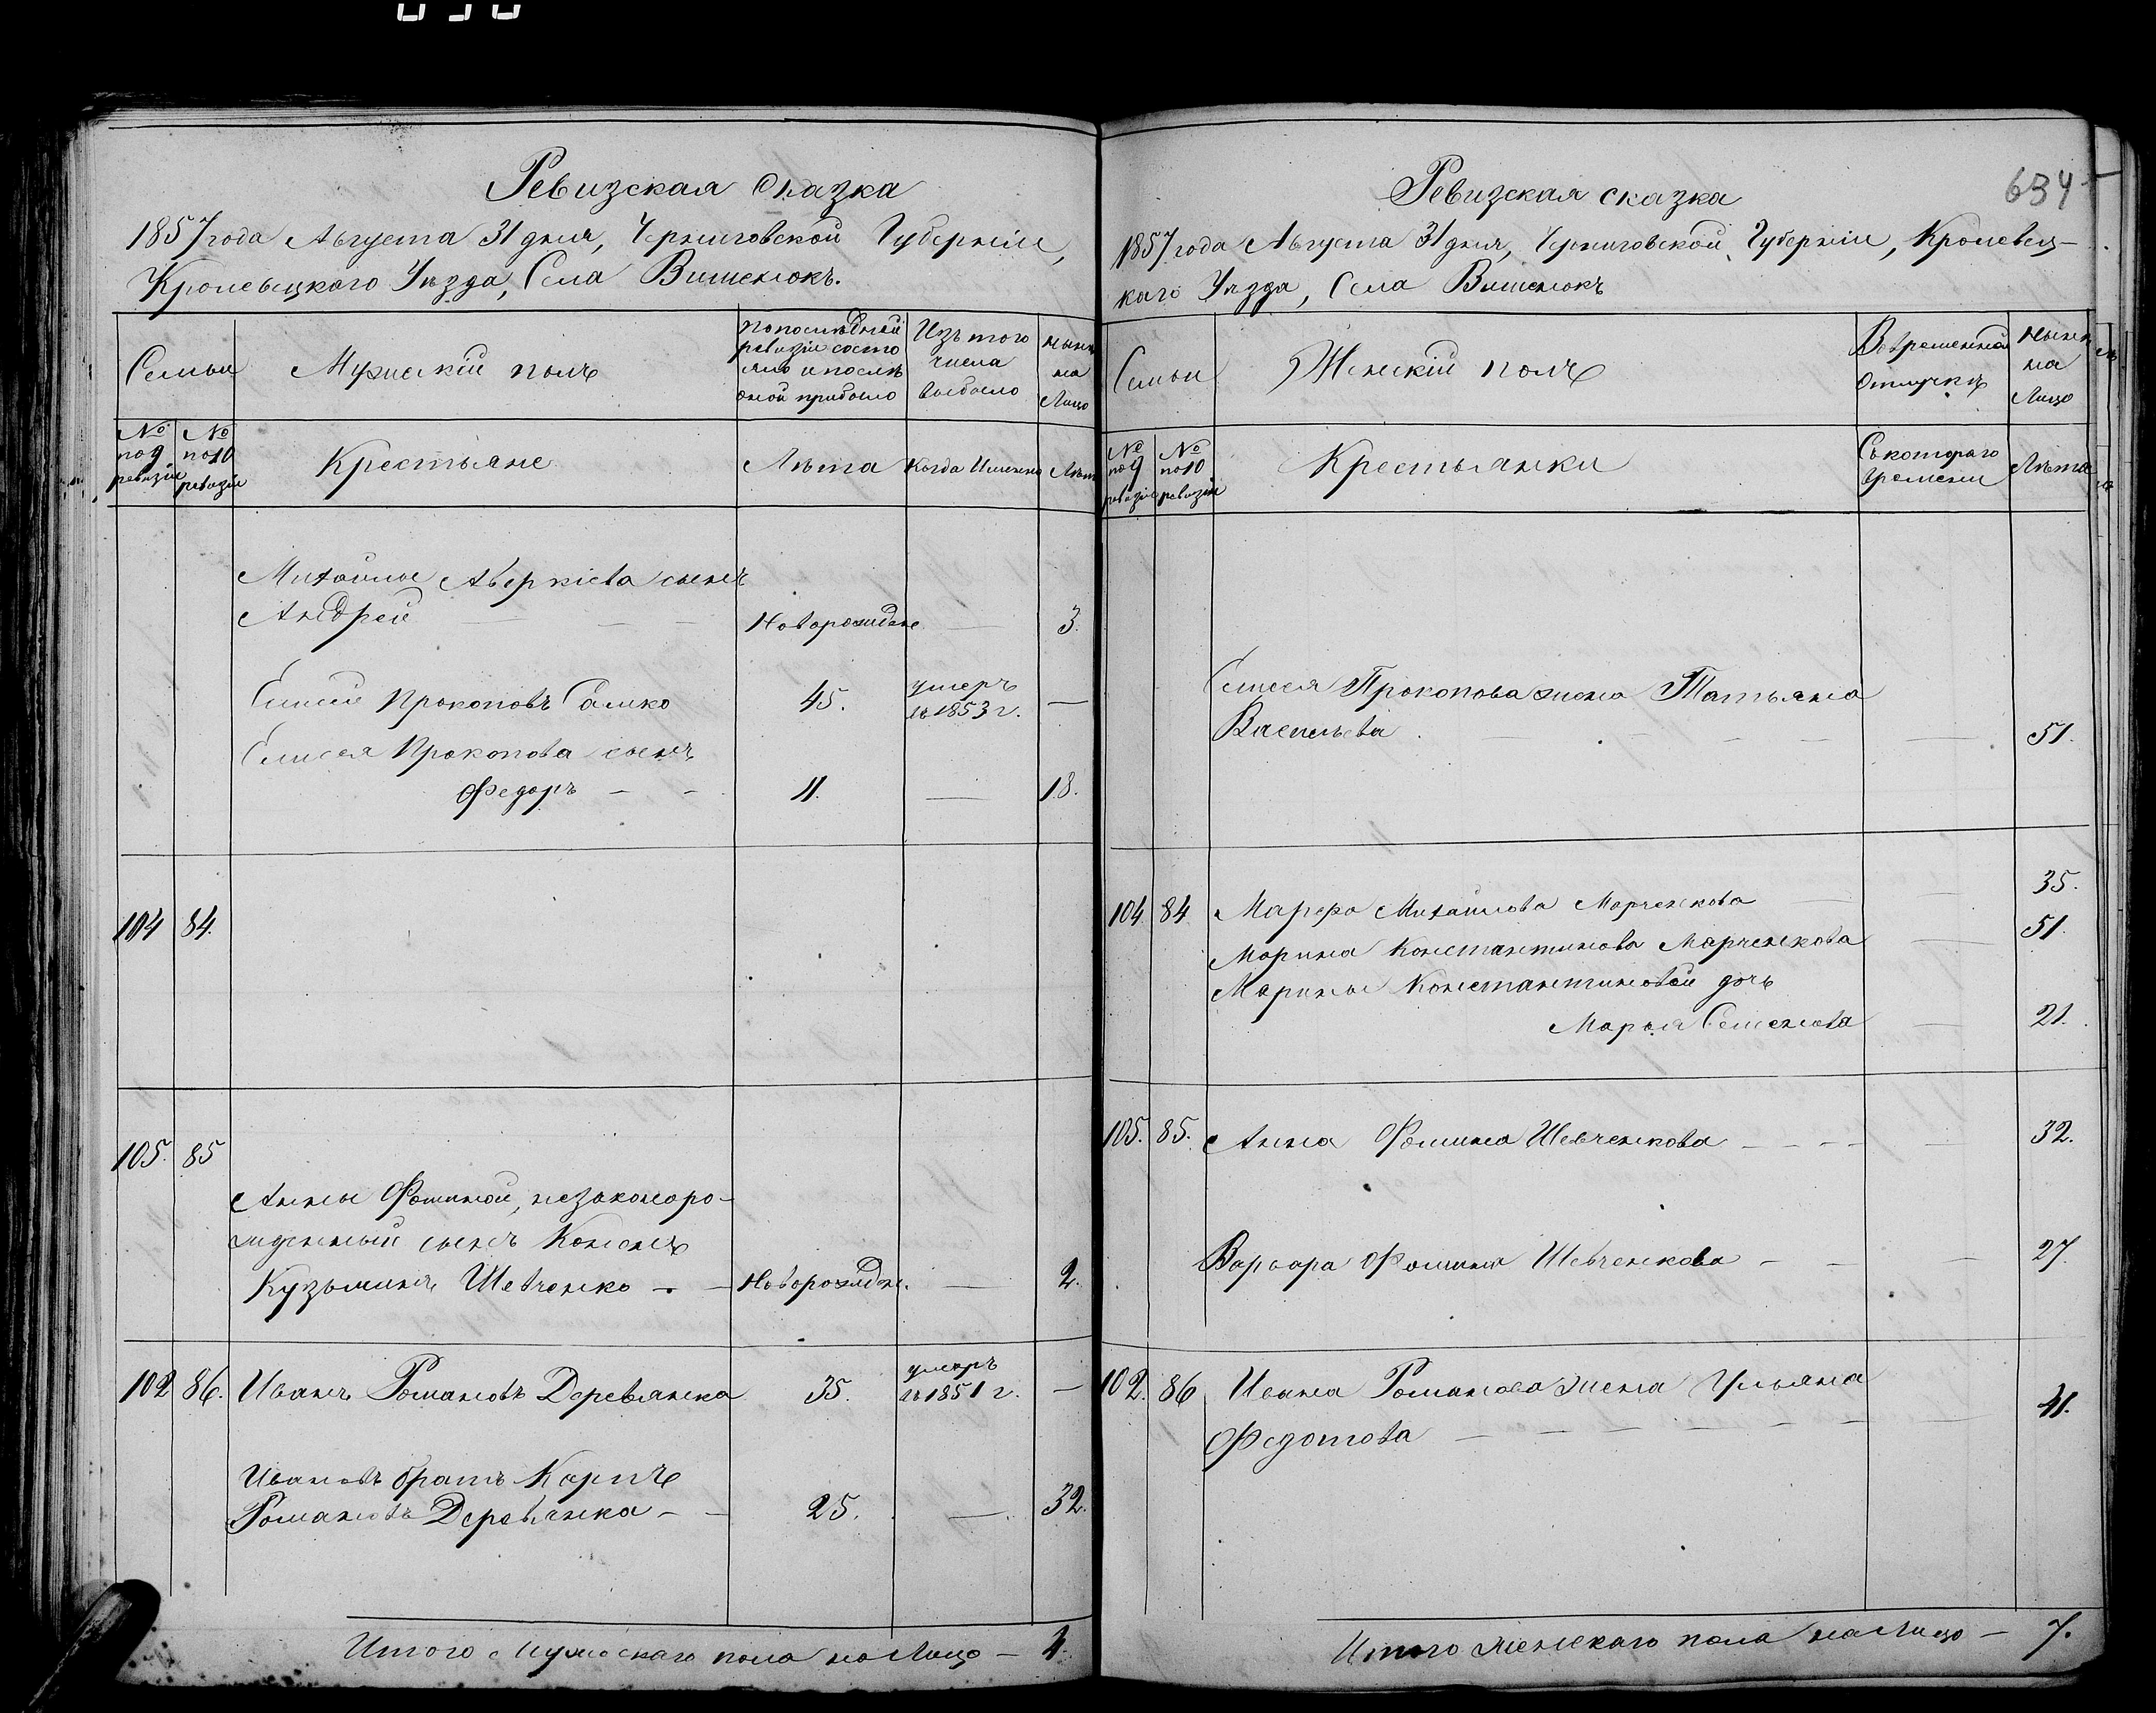 Ревизская сказка
1857 года Августа 31 дня, Черниговской Губерніи,
Кролевецкого Уѣзда, Села Вишенокъ.
Семьи
Мужескій полъ
По послѣдней
ревизіи состо
яло и послѣ
оной прибыло
Изъ того
числа
выбыло
Нынѣ
на
Лицо
№
по 9
ревизіи
№
по 10
ревизіи
Крестьяне
Лѣта
Когда Именно
Лѣта
Михайлы Аверкіева сынъ
Андрей — — — Новорожден — 3.
Елисей Прокоповъ Сомко 45. умеръ
въ 1853 г. —
Елисея Прокопова сынъ
Федоръ — — 11. — 18.
104 84.
105. 85
Анны Фоминой, незаконоро-
жденный сынъ Кононъ
Кузьминъ Шевченко — — Новорожден. — 2.
102 86. Иванъ Романовъ Деревянка 35. умеръ
въ 1851 г. —
Ивановъ братъ Карпъ
Романовъ Деревянка — — 25. — 32.
Итого Мужескаго пола на Лицо — 4.
634
Ревизская сказка
1857 года Августа 31 дня, Черниговской Губерніи, Кролевец-
каго Уѣзда, Села Вишенокъ
Семьи
Женскій полъ
Во временной
отлучкѣ
Нынѣ
на
Лицо
№
по 9
ревизіи
№
по 10
ревизіи
Крестьянки
Съ котораго
времени
Лѣта
Елисея Прокопова жена Татьяна
Васильева — — — — — 51.
104. 84 Марфа Михайлова Марченкова — 35.
Марина Константинова Марченкова — 51.
Марины Константиновой дочь
Марья Семенова — 21.
105. 85. Анна Фомина Шевченкова — — — — 32.
Варвара Фомина Шевченкова — — — 27.
102. 86 Ивана Романова жена Ульяна
Федотова — — — — — — — 41.
Итого женскаго пола на Лицо — 7.